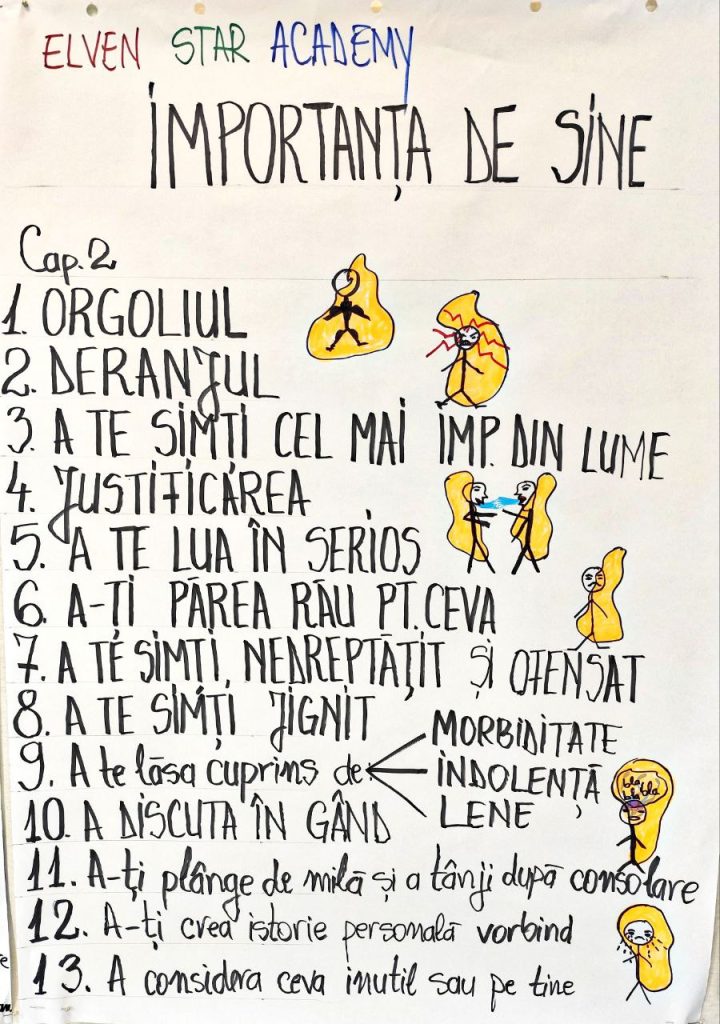 ELVEN STAR ACADEMY
IMPORTANȚA DE SINE
Cap. 2
1. ORGOLIUL
2. DERANJUL
3. A TE SIMTI CEL MAI IMP. DIN LUME
4. JUSTIFICAREA
5. A TE LUA ÎN SERIOS
6. A-ȚI PĂREA RĂU PT. CEVA
7. A TE SIMȚI, NEDREPTĂȚIT ȘI OFENSAT
8. A TE SIMȚI JIGNIT
9. A te lăsa cuprins de
MORBIDITATE
INDOLENȚĂ
LENE
10. A DISCUTA ÎN GÂND
bla
bla bla
11. A-ți plânge de milă și a tânji după consolare
12. A-ți crea istorie personală vorbind
13. A considera ceva inutil sau pe tine